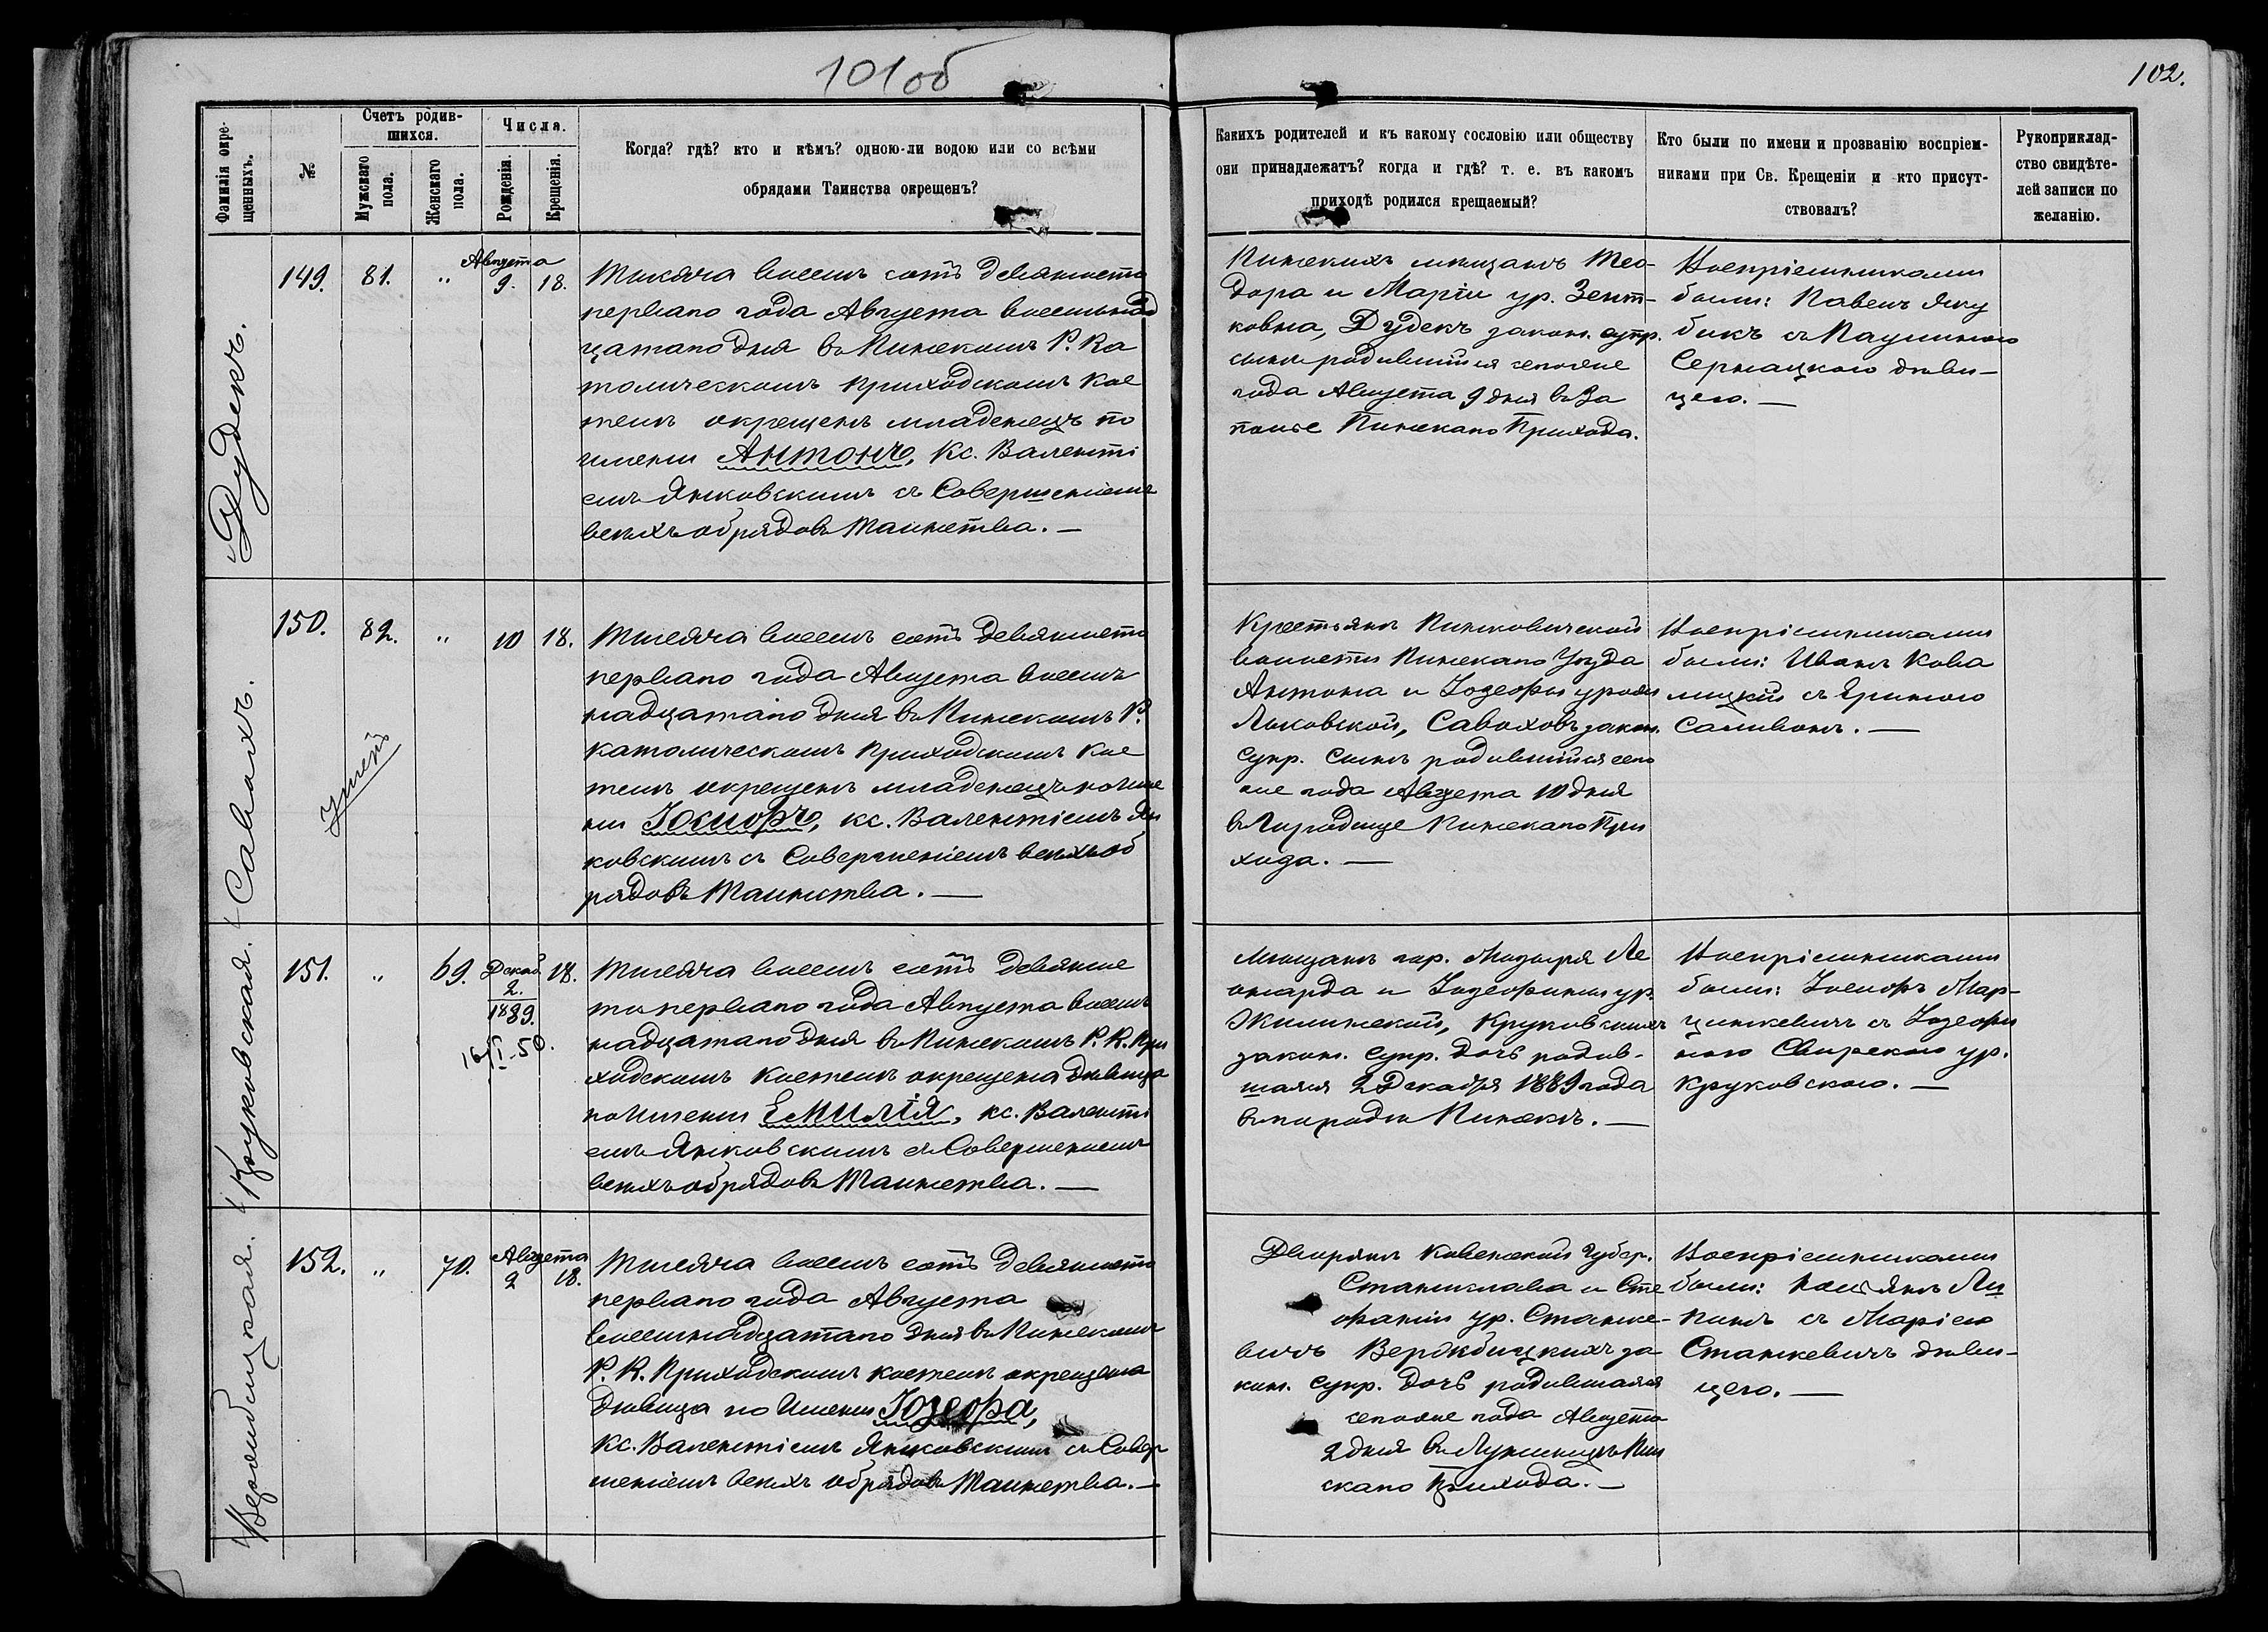 101об
102.
Фамилія окре-
щенныхъ.
№
Счетъ родив-
шихся.
Мужскаго
пола.
Женскаго
пола.
Числа.
Рожденія.
Крещенія.
Когда? гдѣ? кто и кѣмъ? одною-ли водою или со всѣми
обрядами Таинства окрещенъ?
Какихъ родителей и къ какому сословію или обществу
они принадлежатъ? когда и гдѣ? т. е. въ какомъ
приходѣ родился крещаемый?
Кто были по имени и прозванію воспріем-
никами при Св. Крещеніи и кто присут-
ствовалъ?
Рукоприклад-
ство свидѣте-
лей записи по
желанію.
Дудекъ.
149.
81.
"
Августа
9. 18.
Тысяча восемь сотъ девяносто
перваго года Августа восемьнад
цатаго дня въ Пинскомъ Р. Ка
толическомъ Приходскомъ Кос
телѣ окрещенъ младенецъ по
имени Антонъ, Кс. Валенті
емъ Янковскимъ съ Совершеніемъ
всѣхъ обрядовъ Таинства. —
Пинскихъ мѣщанъ Тео-
дора и Маріи ур. Зент-
ковна, Дудекъ закон. супр.
сынъ родившійся сегоже
года Августа 9 дня въ За
полье Пинскаго Прихода.
Воспріемниками
были: Павелъ Яку
бикъ съ Паулиною
Сернацкою дѣви-
цею. —
Савохъ.
150.
82.
"
10
18.
Тысяча восемь сотъ девяносто
перваго года Августа восемь
надцатаго дня въ Пинскомъ Р.
католическомъ Приходскомъ Кос
телѣ окрещенъ младенецъ по Име
ни Іосифъ, кс. Валентіемъ Ян
ковскимъ съ Совершеніемъ всѣхъ об
рядовъ Таинства. —
Крестьянъ Пинковичской
волости Пинскаго Уѣзда
Антона и Іозефы урожд
Лыковской, Савоховъ закон.
супр. сынъ родившійся сего
же года Августа 10 дня
въ Городище Пинскаго При
хода. —
Воспріемниками
были: Иванъ Кова
лицкій съ
Саливонъ. —
Круковская.
151.
"
69.
Декаб.
2.
1889.
18.
16/I-50.
Тысяча восемь сотъ девянос
то перваго года Августа восемь
надцатаго дня въ Пинскомъ Р. К. При
ходскомъ костелѣ окрещена дѣвица
по Имени Емилія, кс. Валенті
емъ Янковскимъ съ Совершеніемъ
всѣхъ обрядовъ Таинства. —
Мѣщанъ гор. Мозыря Ле
онарда и Іозефины ур.
Жилинской, Круковскихъ
закон. супр. дочь родив-
шаяся 2 Декабря 1889 года
въ городѣ Пинскѣ. —
Воспріемниками
были: Іосифъ Мар-
цинкевичъ съ Іозефи
ною Свирскою ур.
Круковскою. —
Вержбицкая.
152.
"
70.
Августа
2 18.
Тысяча восемь сотъ девяносто
перваго года Августа
восемнадцатаго дня въ Пинскомъ
Р. К. Приходскомъ костелѣ окрещена
дѣвица по Имени Іозефа,
Кс. Валентіемъ Янковскимъ съ Совер
шеніемъ всѣхъ обрядовъ Таинства. —
Дворянъ Ковенской Губер.
Станислава и Сте
фаніи ур. Станке-
вичъ Вержбицкихъ за
кон. супр. дочь родившаяся
сегоже года Августа
2 дня въ Лунинцѣ Пин
скаго Прихода. —
Воспріемниками
были: Янъ Ли
пинъ съ Маріею
Станкевичъ дѣви-
цею. —